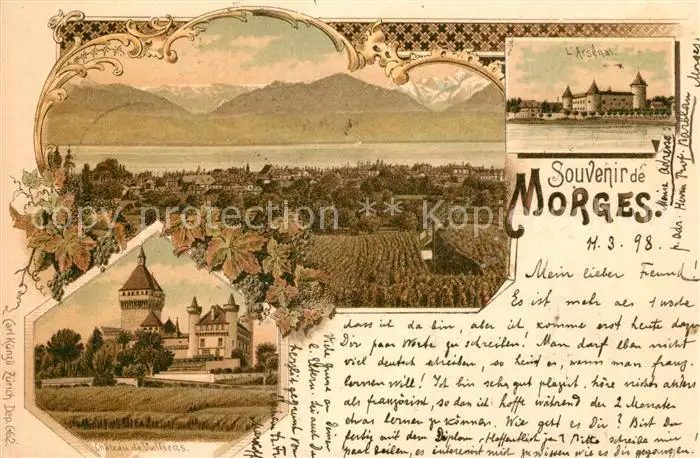 L'Arsénal.
Souvenir de
MORGES.
11.3.98.
Mein lieber Freund!
Es ist mehr als 1 Woche
dass ich da bin, aber ich komme erst heute dazu
Dir paar Worte zu schreiben! Man darf eben nicht
viel deutsch schreiben, so heisst es, wenn man franz.
lernen will! Ich bin sehr gut plaziert, höre nichts anders
als französisch, so dass ich hoffe während der 2 Monaten
etwas lernen zu können. Wie geht es Dir? Bist Du
fertig mit dem Diplom, (Hoffentlich ja)? Bitte schreibe mir
paar Zeilen, es interessiert mich zu wissen wie es Dir gegangen.
Meine Adresse:
p. adr. Herrn Prof.
Morges
Viele Grüsse an Deine
herzlich gegrüsst von
Château de Vufflens.
Carl Künzli, Zürich, Dep. 662.
copyright by oldthing.com